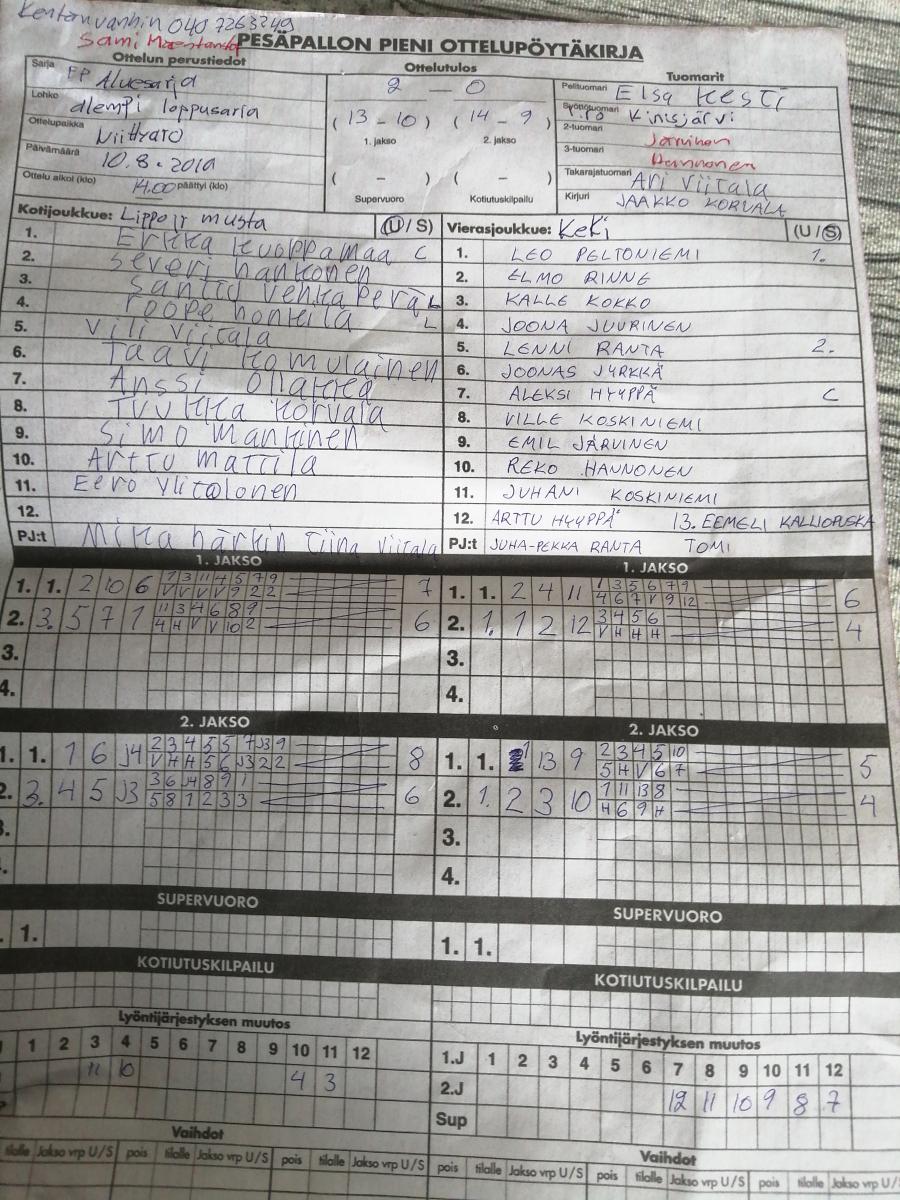 Kentänvanhin 040 7263249
Sami
PESÄPALLON PIENI OTTELUPÖYTÄKIRJA
Ottelun perustiedot
Sarja FP Aluesarja
Lohko alempi loppusarja
Ottelupaikka
Päivämäärä 10.8.2019
Ottelu alkoi (klo) 14.00 päättyi (klo)
Ottelutulos
2 – 0
(13 – 10) (14 – 9)
1. jakso 2. jakso
( – ) ( – )
Supervuoro Kotiutuskilpailu
Tuomarit
Pelituomari Elsa Kesti
Syöttötuomari Kinisjärvi
2-tuomari Järvinen
3-tuomari Hannonen
Takarajatuomari Ari Viitala
Kirjuri JAAKKO KORVALA
Kotijoukkue: Lippo jr musta (U / S)
1. Erkka Kuoppamaa C
2. Severi hankonen
3. Santtu Venkaperä L
4. roope honkila L
5. Vili Viitala
6. Taavi komulainen
7. Anssi Ollakka
8. Tuukka korvala
9. Simo mankinen
10. Arttu mattila
11. Eero Ylitalonen
12.
PJ:t Mika härkin tiina viitala
Vierasjoukkue: KeKi (U / S)
1. LEO PELTONIEMI 1.
2. ELMO RINNE
3. KALLE KOKKO
4. JOONA JUURINEN
5. LENNI RANTA 2.
6. JOONAS JYRKKÄ
7. ALEKSI HYYPPÄ C
8. VILLE KOSKINIEMI
9. EMIL JÄRVINEN
10. REKO HANNONEN
11. JUHANI KOSKINIEMI
12. ARTTU HYYPPÄ 13. EEMELI KALLIOPUSKA
PJ:t JUHA-PEKKA RANTA TOMI
1. JAKSO
1. 1. 2 10 6 1 3 11 4 5 7 9 7
V V V V 9 2 2
2. 3. 5 7 1 11 3 4 6 8 9 6
4 H V V 10 2
3.
4.
1. JAKSO
1. 1. 2 4 11 1 3 5 6 7 9 6
4 6 7 V 9 12
2. 1. 1 2 12 3 4 5 6 4
V H H H
3.
4.
2. JAKSO
1. 1. 1 6 J4 2 3 4 5 5 7 J3 9 8
V H H 5 6 J3 2 2
2. 3. 4 5 J3 3 6 J4 8 9 1 6
5 8 1 2 3 3
2. JAKSO
1. 1. 1 13 9 2 3 4 5 10 5
5 H V 6 7
2. 1. 2 3 10 1 11 13 8 4
H 6 9 H
3.
4.
SUPERVUORO
1.
SUPERVUORO
1. 1.
KOTIUTUSKILPAILU
KOTIUTUSKILPAILU
Lyöntijärjestyksen muutos
1 2 3 4 5 6 7 8 9 10 11 12
11 10 4 3
Lyöntijärjestyksen muutos
1.J 1 2 3 4 5 6 7 8 9 10 11 12
2.J 12 11 10 9 8 7
Sup
Vaihdot
tilalle Jakso vrp U/S pois tilalle Jakso vrp U/S pois tilalle Jakso vrp U/S
Vaihdot
pois tilalle Jakso vrp U/S pois tilalle Jakso vrp U/S pois tilalle Jakso vrp U/S